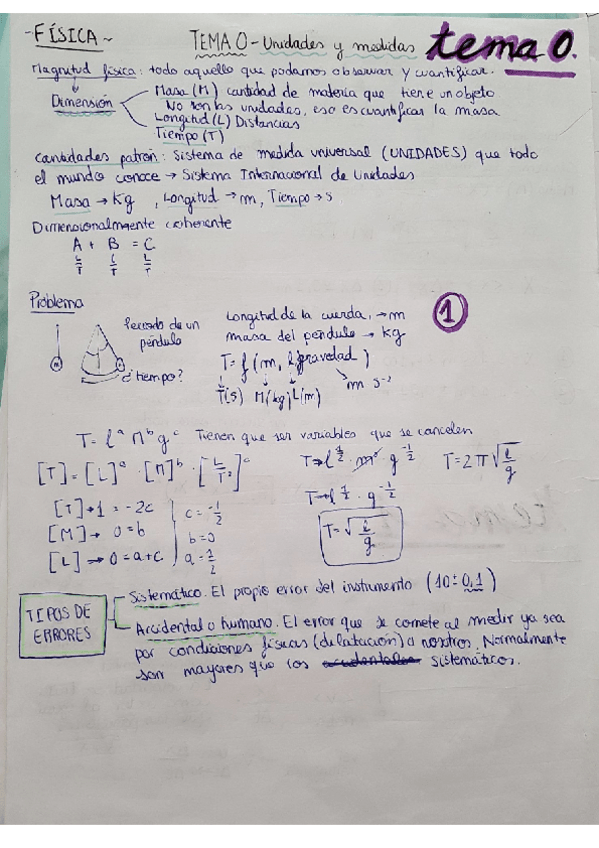 ~FÍSICA~ TEMA 0 - Unidades y medidas tema 0.
Magnitud física: todo aquello que podamos observar y cuantificar.
Dimensión
Masa (M) cantidad de materia que tiene un objeto.
No son las unidades, eso es cuantificar la masa
Longitud (L) Distancias
Tiempo (T)
Cantidades patrón: Sistema de medida universal (UNIDADES) que todo
el mundo conoce → Sistema Internacional de Unidades
Masa → Kg, Longitud → m, Tiempo → s
Dimensionalmente coherente
A + B = C
L/T L/T L/T
Problema
Periodo de un
péndulo
¿tiempo?
m
Longitud de la cuerda, → m
masa del péndulo → kg
1
T = f (m, l, gravedad)
T(s) M(kg) L(m) m s-2
T = l^a m^b g^c Tienen que ser variables que se cancelen
[T] = [L]^a · [M]^b · [L/T²]^c
[T] → 1 = -2c
[M] → 0 = b
[L] → 0 = a+c
c = -1/2
b = 0
a = 1/2
T → l^1/2 · m^0 g^-1/2
T → l^1/2 · g^-1/2
T = √l/g
T = 2π √l/g
TIPOS DE
ERRORES
Sistemático. El propio error del instrumento (10 ± 0,1)
Accidental o humano. El error que se comete al medir ya sea
por condiciones físicas (dilatación) o nosotros. Normalmente
son mayores que los sistemáticos.